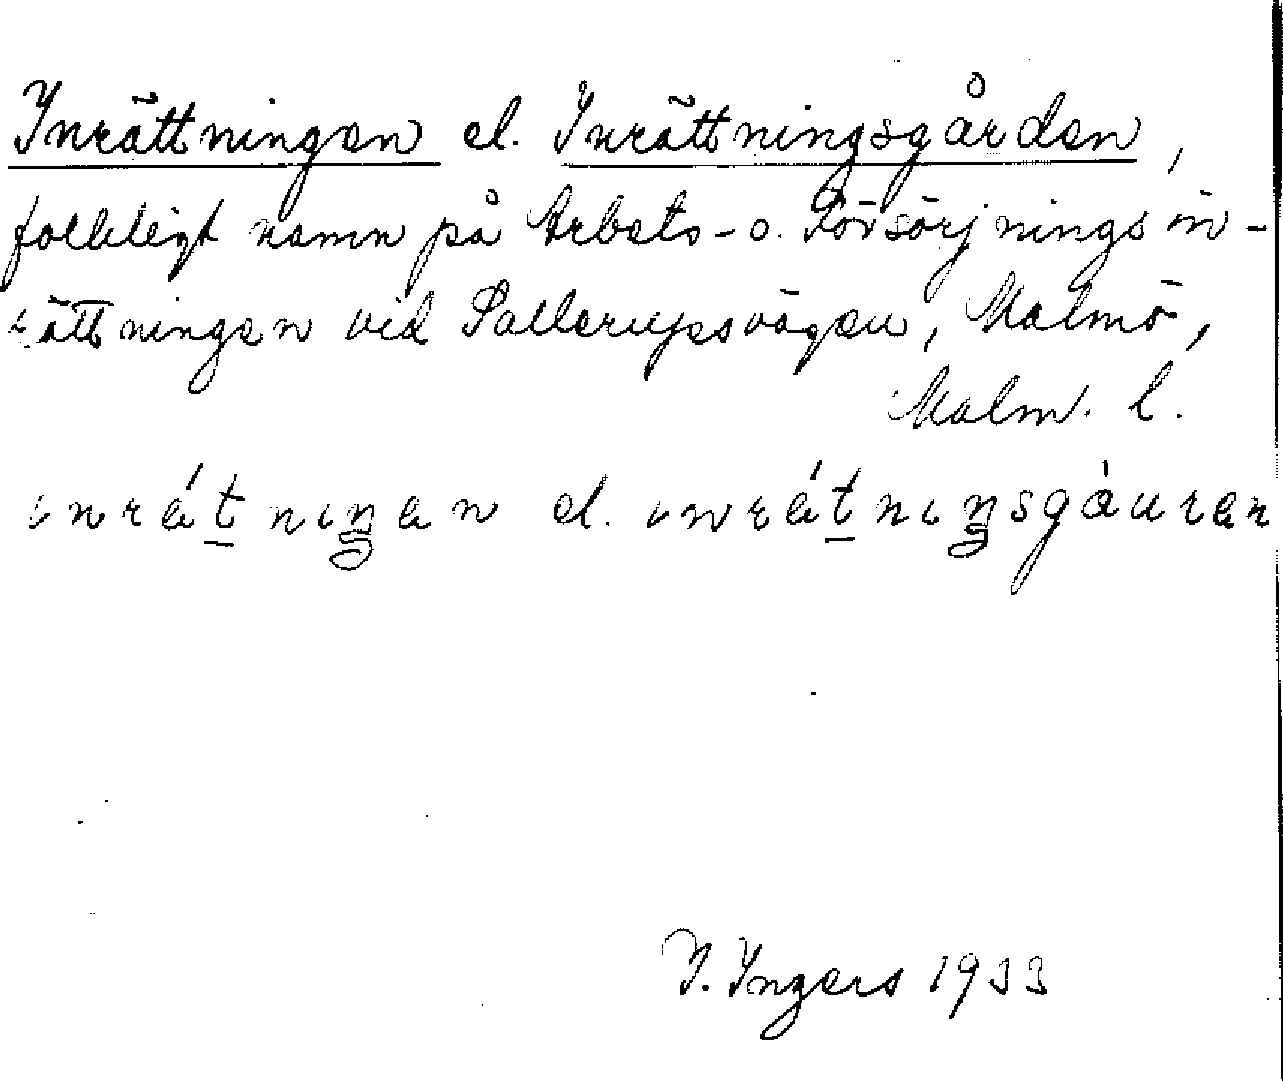 Inrättningen el. Inrättningsgården,
folkligt namn på Arbets- o. Försörjningsin-
rättningen vid Sallerupsvägen, Malmö,
Malm. l.
inrátniŋan el. inrátniŋsgáuran
I. Ingers 1933